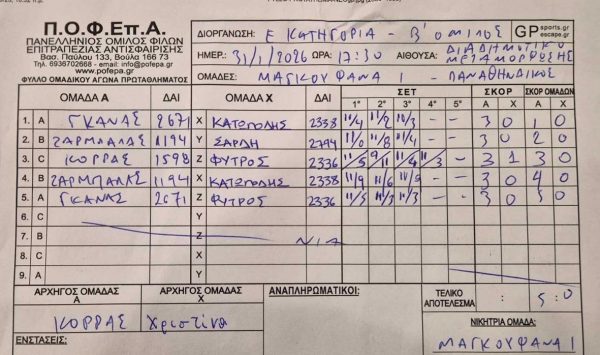 Π.Ο.Φ.Επ.Α.
ΠΑΝΕΛΛΗΝΙΟΣ ΟΜΙΛΟΣ ΦΙΛΩΝ
ΕΠΙΤΡΑΠΕΖΙΑΣ ΑΝΤΙΣΦΑΙΡΙΣΗΣ
Βασ. Παύλου 133, Βούλα 166 73
Τηλ. 6936702668 - email: info@pofepa.gr
http://www.pofepa.gr
ΦΥΛΛΟ ΟΜΑΔΙΚΟΥ ΑΓΩΝΑ ΠΡΩΤΑΘΛΗΜΑΤΟΣ
ΔΙΟΡΓΑΝΩΣΗ: Ε ΚΑΤΗΓΟΡΙΑ - Β' ΟΜΙΛΟΣ GP sports.gr escape.gr
ΗΜΕΡ.: 31/1/2026 ΩΡΑ: 17:30 ΑΙΘΟΥΣΑ: ΔΙΑΔΗΜΟΤΙΚΟ ΜΕΤΑΜΟΡΦΩΣΗΣ
ΟΜΑΔΕΣ: ΜΑΓΚΟΥΦΑΝΑ 1 - ΠΑΝΑΘΗΝΑΙΚΟΣ
ΟΜΑΔΑ Α ΔΑΙ ΟΜΑΔΑ Χ ΔΑΙ ΣΕΤ ΣΚΟΡ ΣΚΟΡ ΟΜΑΔΩΝ
1° 2° 3° 4° 5° Α Χ Α Χ
1. Α ΓΚΑΝΑΣ 2671 Χ ΚΑΤΩΠΟΔΗΣ 2338 11/4 11/2 10/3 - - 3 0 1 0
2. Β ΖΑΡΜΠΑΛΑΣ 1194 Υ ΣΑΡΔΗ 2794 11/0 11/8 11/4 - - 3 0 2 0
3. C ΚΟΡΡΑΣ 1598 Ζ ΦΥΤΡΟΣ 2336 11/5 9/11 11/4 11/3 - 3 1 3 0
4. Β ΖΑΡΜΠΑΛΑΣ 1194 Χ ΚΑΤΩΠΟΔΗΣ 2338 11/9 11/6 - - 3 0 4 0
5. Α ΓΚΑΝΑΣ 2671 Ζ ΦΥΤΡΟΣ 2336 11/5 11/3 11/3 - - 3 0 5 0
6. C Υ
7. Β Ζ N/A
8. C Χ
9. Α Υ
ΑΡΧΗΓΟΣ ΟΜΑΔΑΣ Α ΑΡΧΗΓΟΣ ΟΜΑΔΑΣ Χ ΑΝΑΠΛΗΡΩΜΑΤΙΚΟΙ: ΤΕΛΙΚΟ ΑΠΟΤΕΛΕΣΜΑ : 5:0
ΚΟΡΡΑΣ Χριστίνα
ΝΙΚΗΤΡΙΑ ΟΜΑΔΑ:
ΕΝΣΤΑΣΕΙΣ: ΜΑΓΚΟΥΦΑΝΑ 1